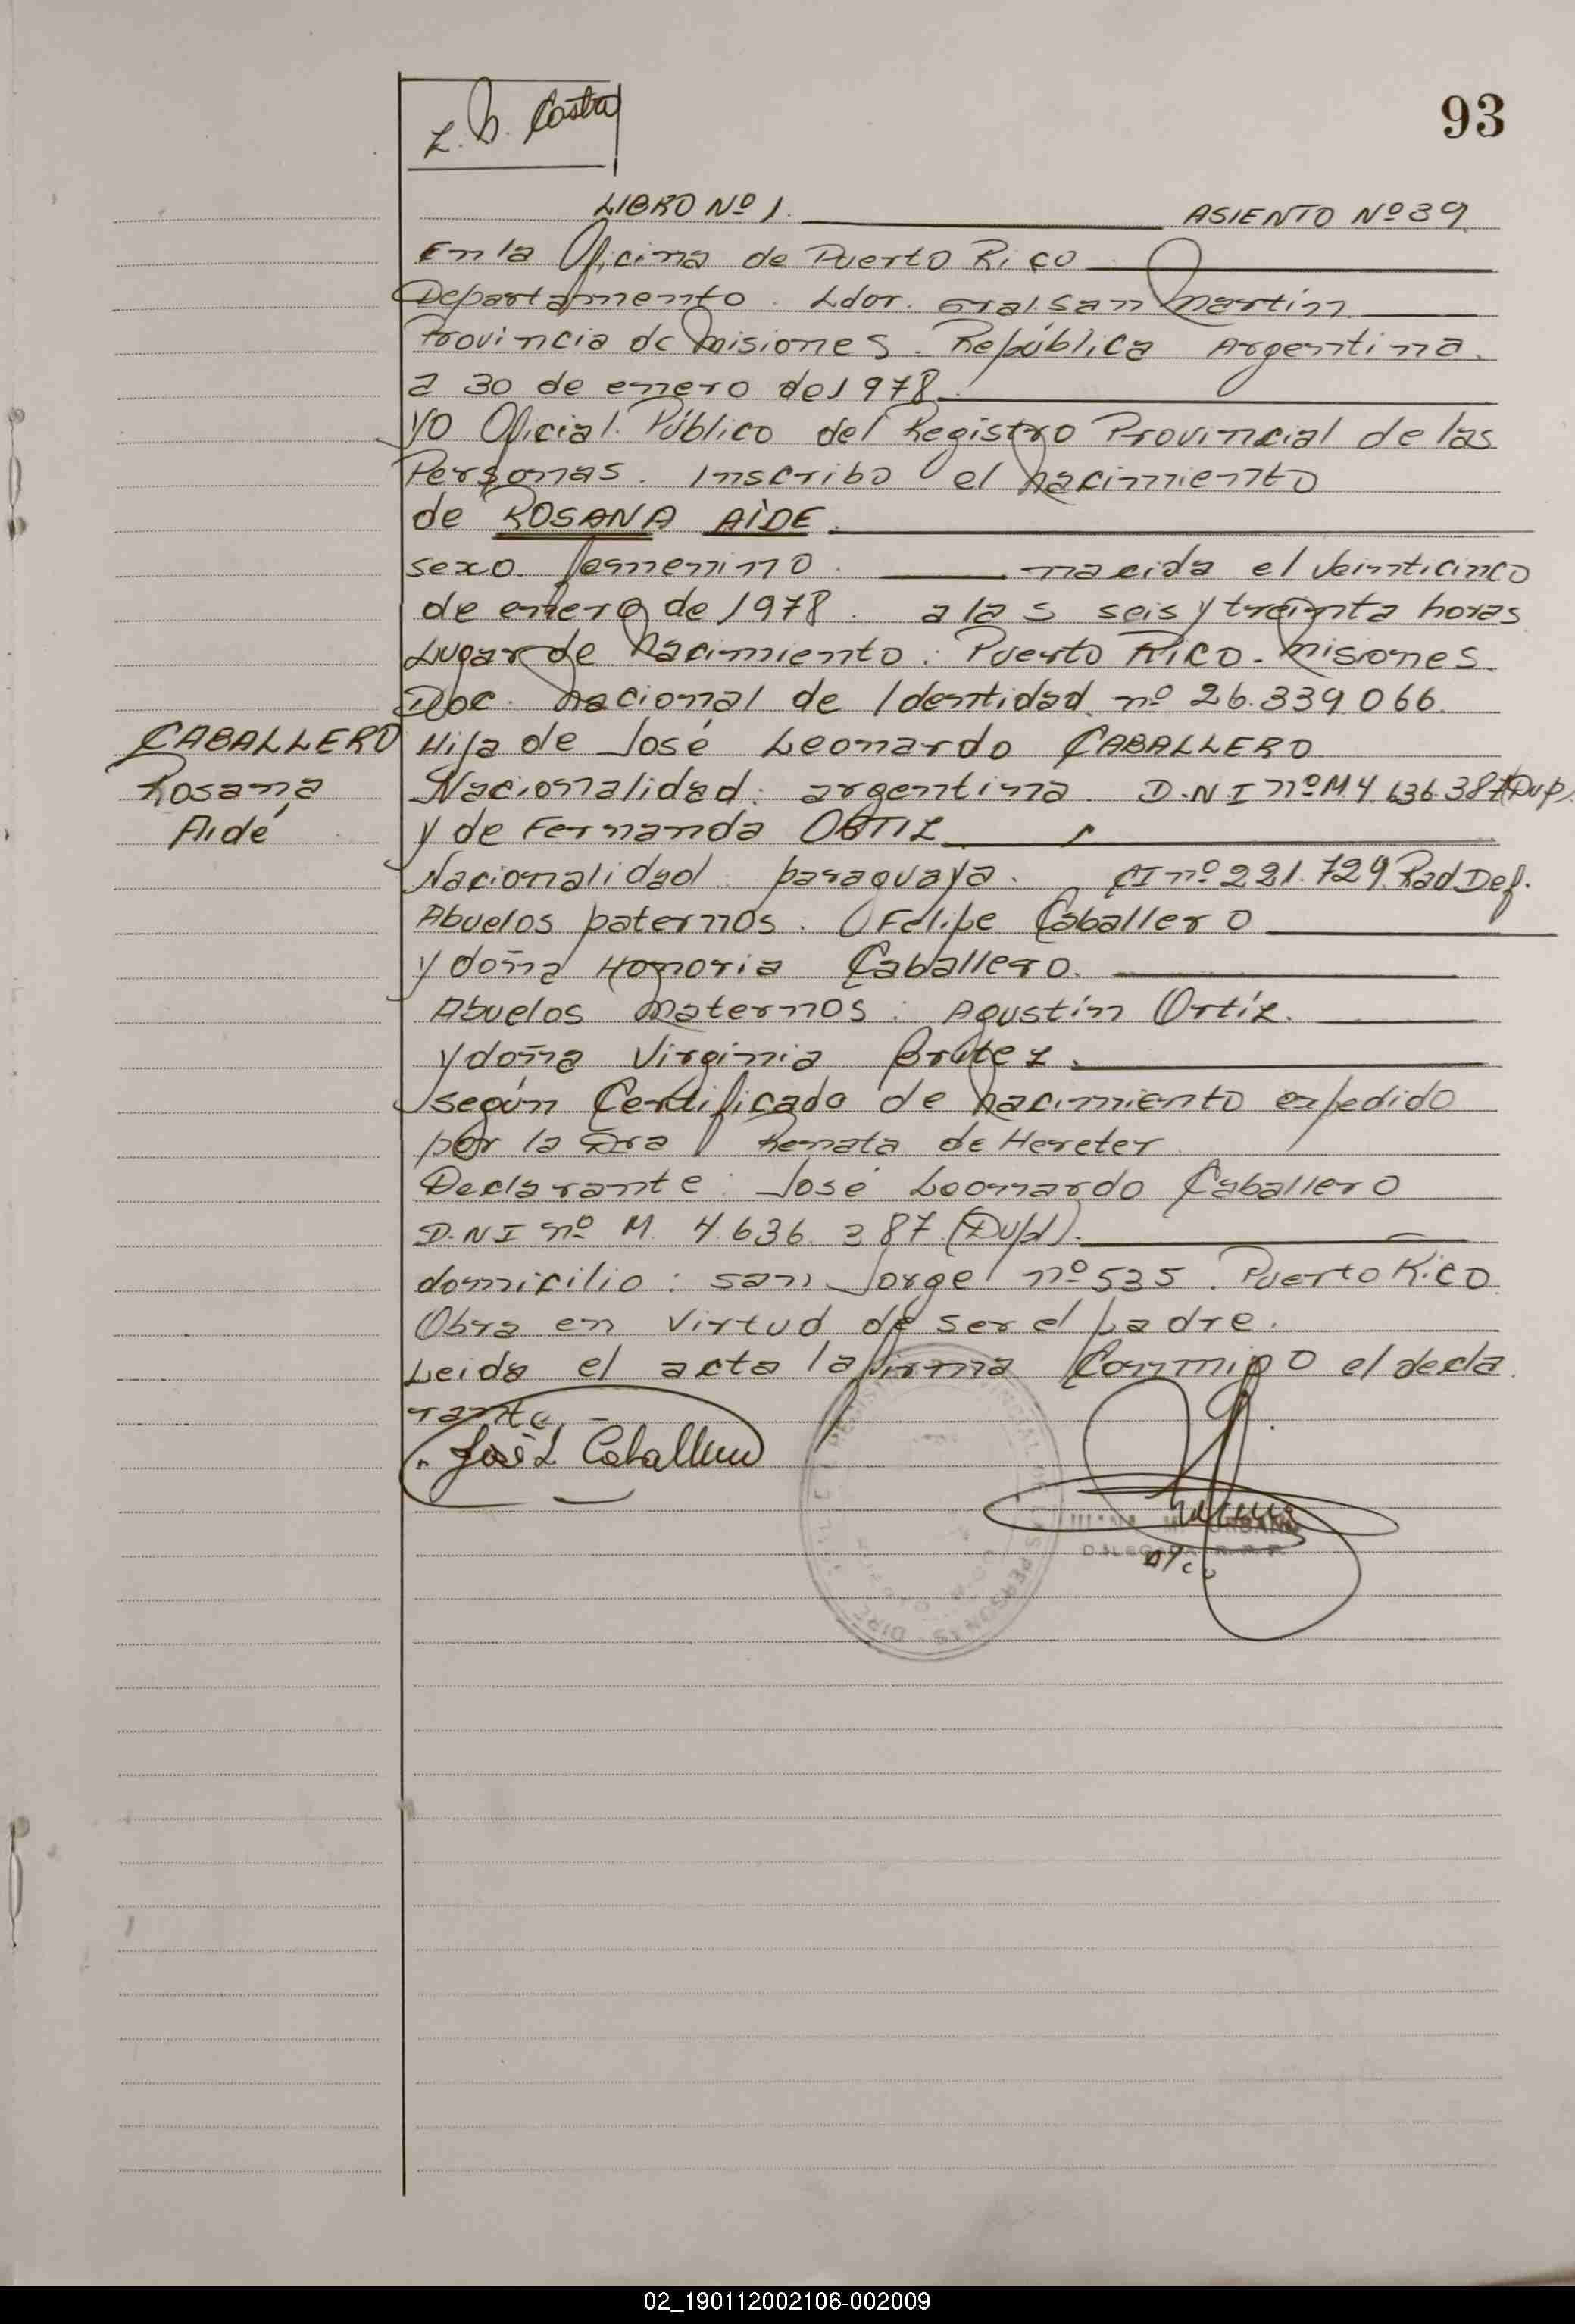 93
L. B. Costra
LIBRO Nº 1. ASIENTO Nº 39.
En la Oficina de Puerto Rico
Departamento. Ldor. Gral. San Martín
Provincia de Misiones. República Argentina.
a 30 de enero de 1978
yo Oficial Público del Registro Provincial de las
Personas. Inscribo el nacimiento
de ROSANA AIDE.
sexo femenino. nacida el veinticinco
de enero de 1978. a las seis y treinta horas
Lugar de Nacimiento: Puerto Rico - Misiones.
Doc. Nacional de Identidad nº 26.339.066.
CABALLERO
Rosana
Aidé
Hija de José Leonardo CABALLERO
Nacionalidad: argentina. D.N.I nº M 4 636.387 (Dup).
y de Fernanda ORTIZ
Nacionalidad paraguaya. CI nº 221.729. Rad Def.
Abuelos paternos. Felipe Caballero
y doña Honoria Caballero.
Abuelos Maternos: Agustín Ortíz.
y doña Virginia Britez.
según Certificado de Nacimiento expedido
por la Dra Renata de Hereter
Declarante: José Leonardo Caballero
D.N.I nº M. 4.636.387. (Dupl).
domicilio: San Jorge nº 535. Puerto Rico
Obra en virtud de ser el padre.
Leida el acta la firma Conmigo el decla
rante
José L Caballero
M. URBANO
DELEGADA
02_190112002106-002009